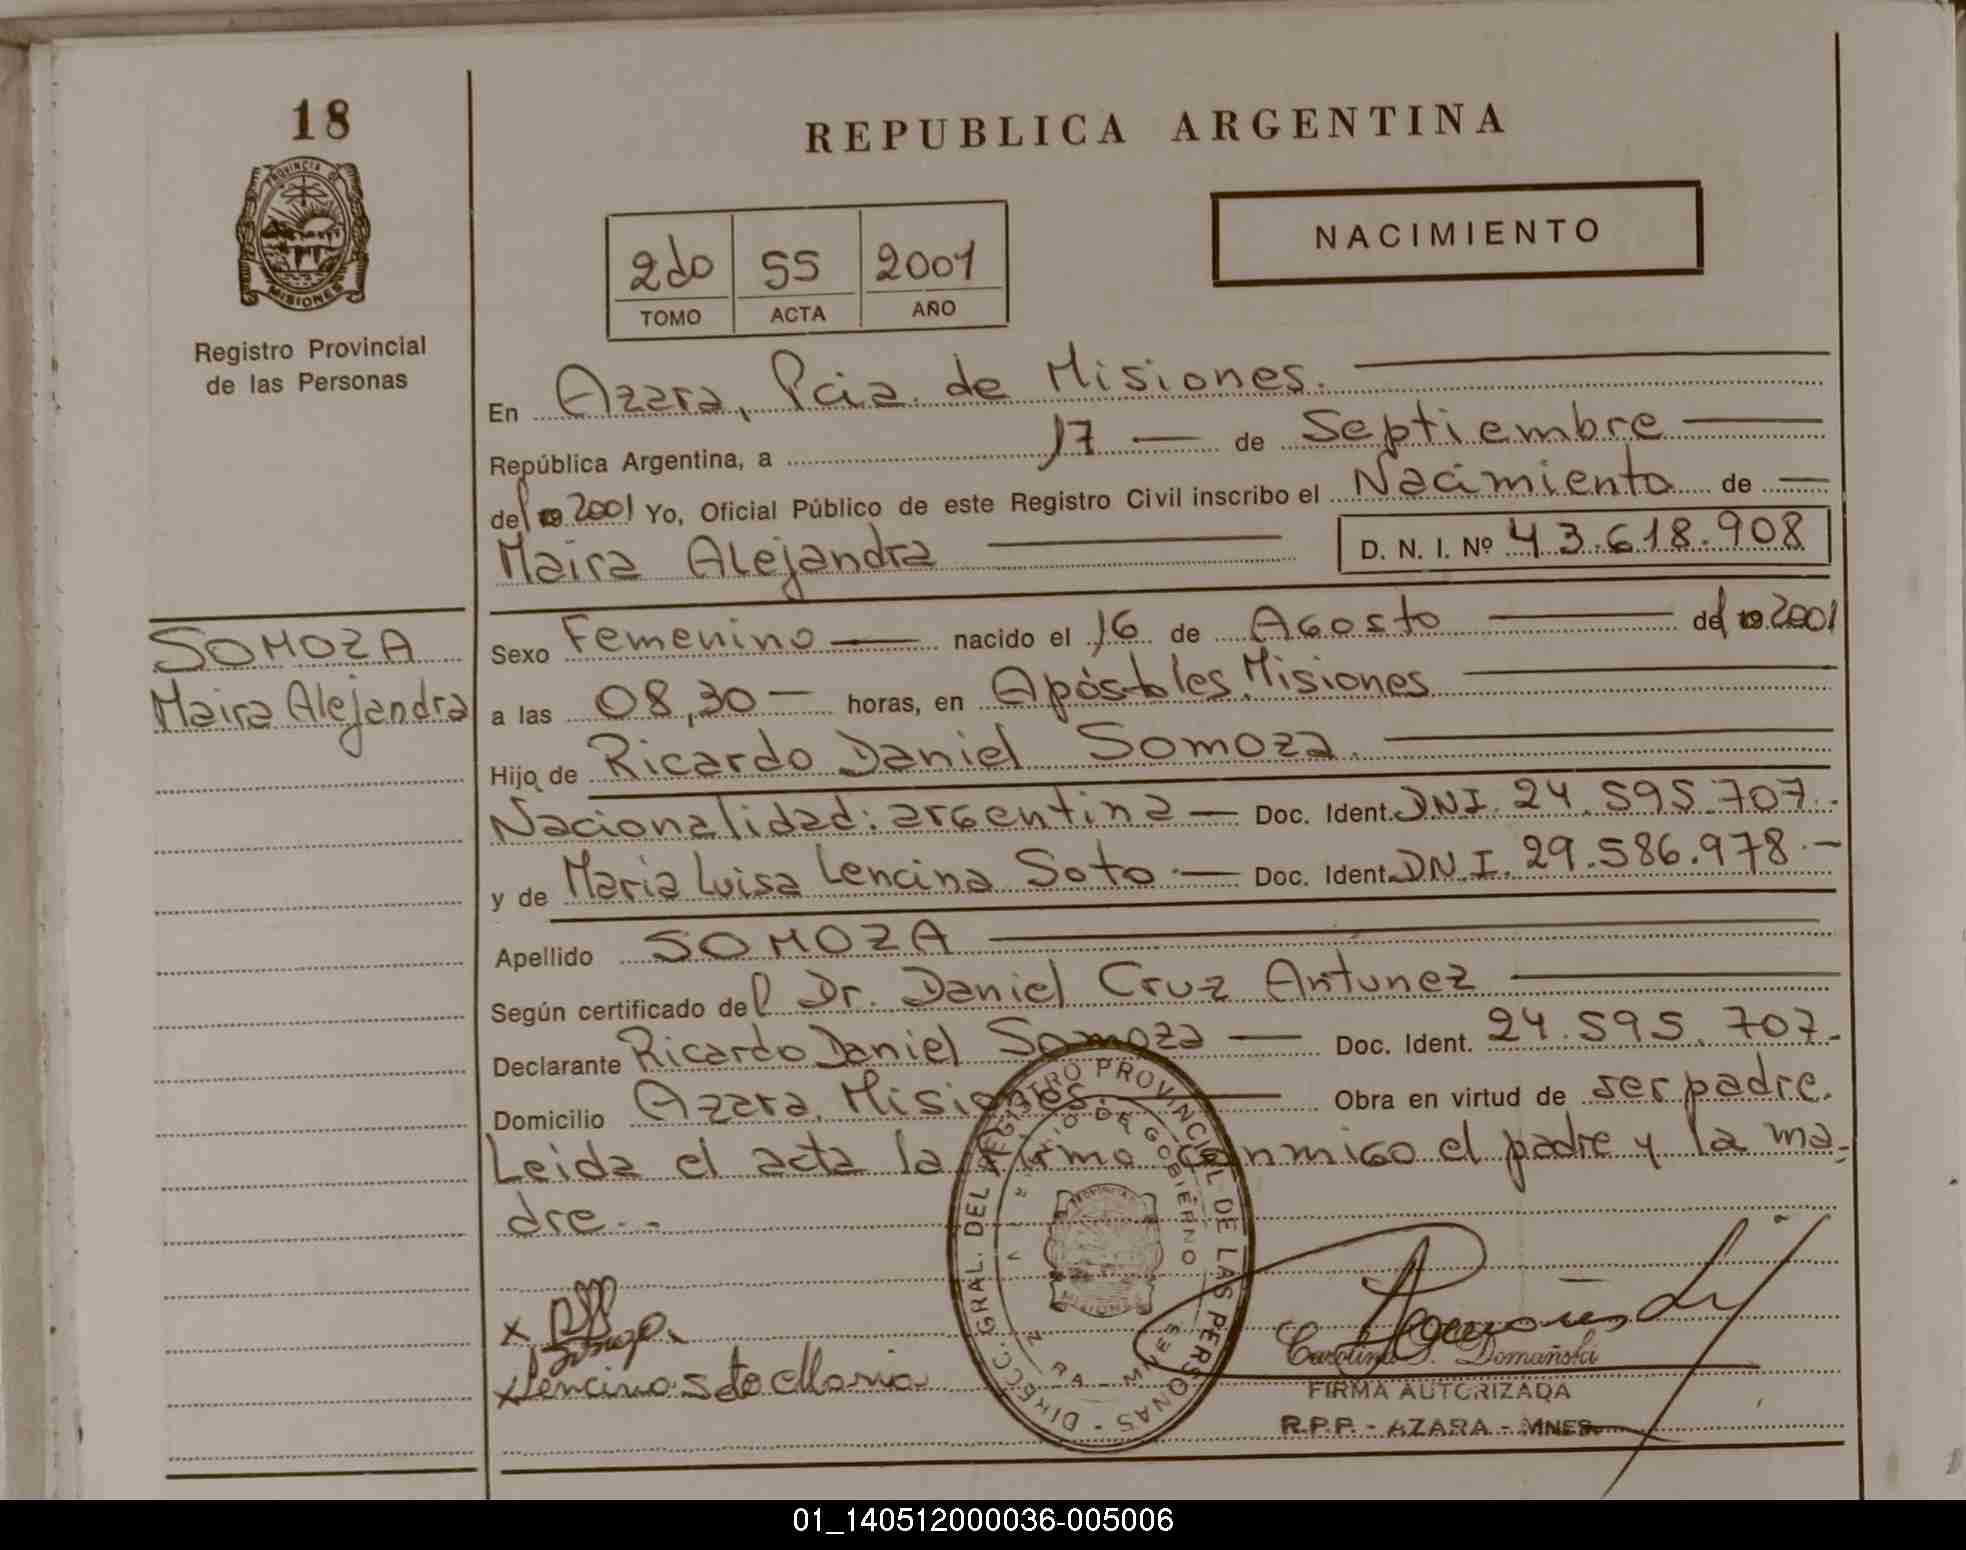 18
PROVINCIA D
MISIONES
Registro Provincial
de las Personas
REPUBLICA ARGENTINA
2do 55 2001
TOMO ACTA AÑO
NACIMIENTO
En Azara, Pcia. de Misiones.
República Argentina, a 17 — de Septiembre
del 2001 Yo, Oficial Público de este Registro Civil inscribo el Nacimiento de —
Maira Alejandra D. N. I. Nº 43.618.908
SOMOZA
Maira Alejandra
Sexo Femenino — nacido el 16 de Agosto — del 2001
a las 08,30 — horas, en Apóstoles, Misiones
Hijo de Ricardo Daniel Somoza.
Nacionalidad: argentina — Doc. Ident. DNI. 24.595.707.-
y de Maria Luisa Lencina Soto. — Doc. Ident. DN.I. 29.586.978.—
Apellido SOMOZA
Según certificado del Dr. Daniel Cruz Antunez
Declarante Ricardo Daniel Somoza — Doc. Ident. 24.595.707.-
Domicilio Azara, Misiones. — Obra en virtud de ser padre.
Leida el acta la firma conmigo el padre y la ma-
dre.--
DIRECC. GRAL. DEL REGISTRO PROVINCIAL DE LAS PERSONAS -
DE GOBIERNO
MISIONES
x Somoza
x Lencina Soto Maria
Carolina Domañski
FIRMA AUTORIZADA
R.P.P. - AZARA - MNES.
01_140512000036-005006